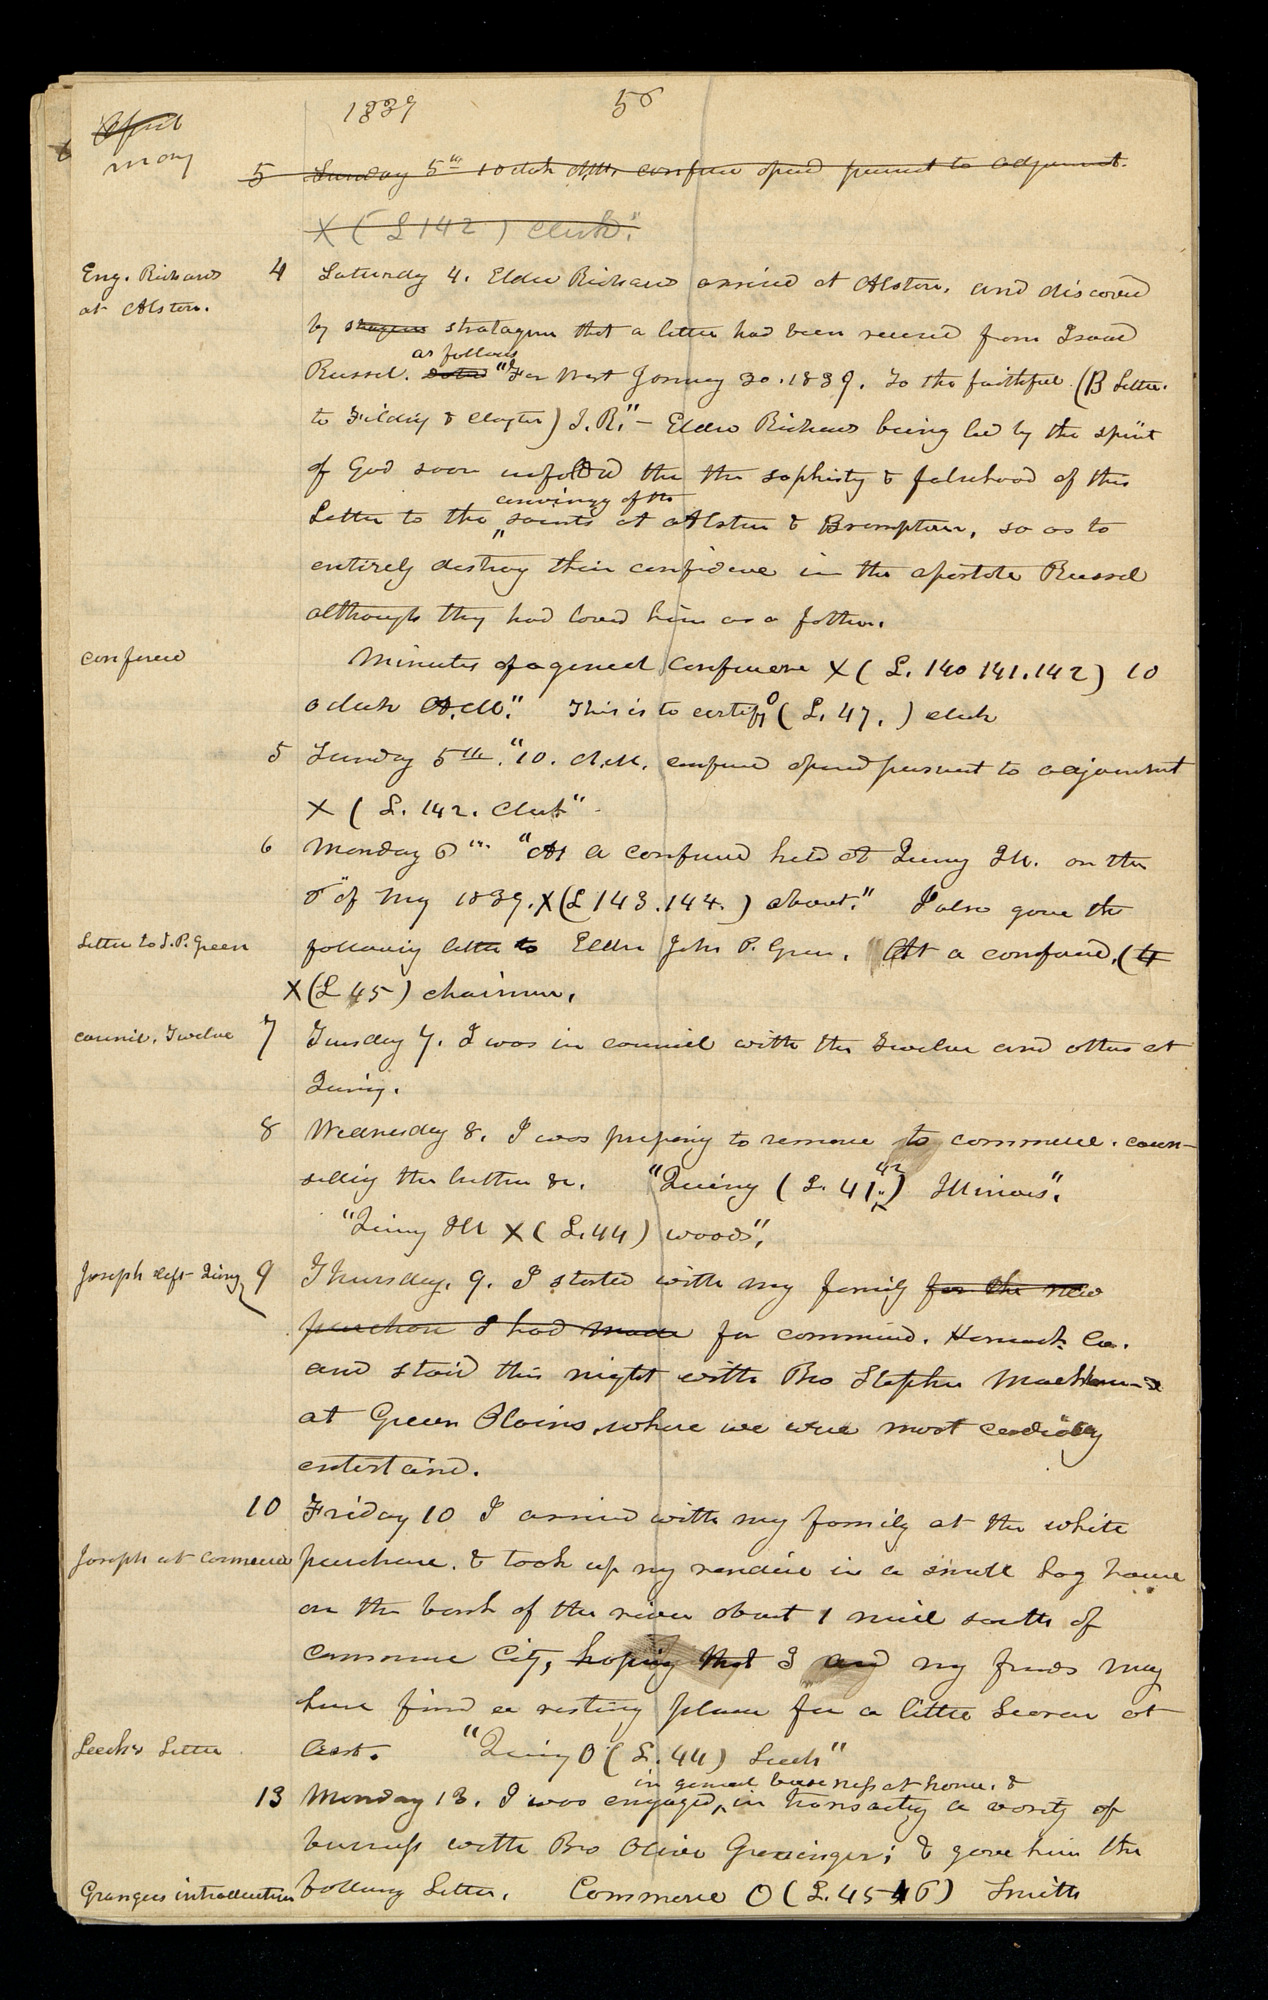 1839 56
April
May
5 Sunday 5th 10 oclock A.M. confere opened pursuant to adjournment.
X (L 142) clerk."
Eng. Richards 4 Saturday 4. Elder Richards arrived at Alston. and discovered
at Alston.
by stratagem that a letter had been received from Isaac
as follows
Russel. dated "Far West January 30. 1839. To the faithful (B Letter.
to Fielding & Clayton) I. R." – Elder Richards being led by the spirit
of God soon unfolded the the sophistry & falsehood of this
convincing of the
Letter to the saints at Alston & Brompton, so as to
entirely destroy their confidence in the apostate Russel
although they had loved him as a father.
conference Minutes of a general conference X (L. 140 141. 142) 10
oclock A.M." This is to certify O (L. 47.) clerk
5 Sunday 5th. "10. A.M. conference opened pursuant to adjournment
X (L. 142. Clerk"
6 Monday 6th "At a conference held at Quincy Ill. on the
6" of May 1839. X (L 143. 144.) about." I also gave the
Letter to J. P. Green following letter to Elder John P. Green. "At a conference, (4
X (L 45) chairman.
council, Twelve 7 Tuesday 7. I was in council with the Twelve and others at
Quincy.
8 Wednesday 8. I was preparing to remove to commerce. coun-
42
selling the brethren &c. "Quincy (L. 41.) Illinois".
"Quincy Ill X (L. 44) woods".
Joseph left Quincy 9 Thursday. 9. I started with my family for the new
purchase I had made for commerce. Hancock Co.
and staid this night with Bro Stephen
at Green Plains, where we were most cordially
entertaind.
10 Friday 10 I arrived with my family at the white
Joseph at Commerce purchase. & took up my residence in a small Log house
on the bank of the river about 1 mile south of
Commerce City, hoping that I and my friends may
here find a resting place for a little season at
Leech's Letter least. "Quincy O (L. 44) Leech"
in general business at home. &
13 Monday 13. I was engaged in transacting a variety of
business with Bro Oliver Granger; & gave him the
Grangers introduction following Letter. Commerce O (L. 45 46) Smith